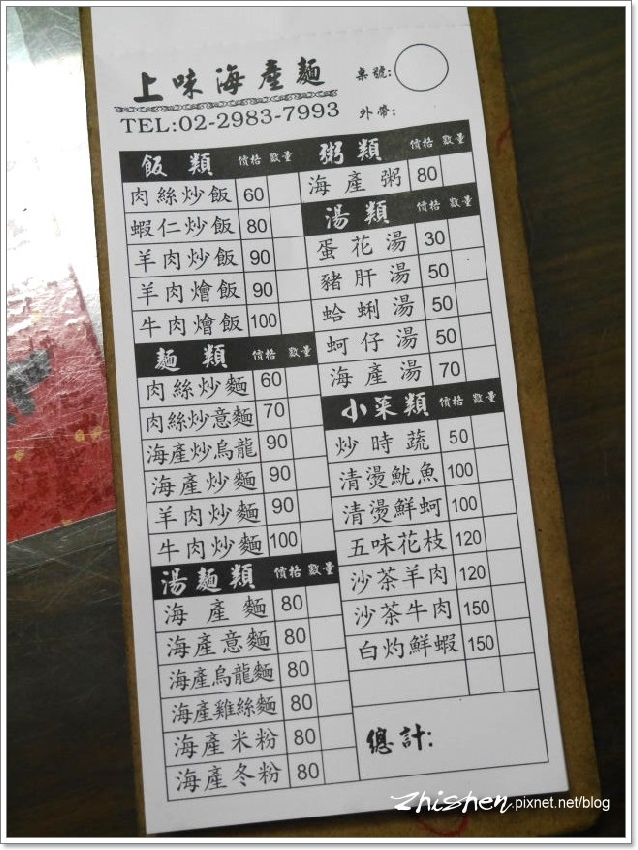 上味海產麵
TEL:02-2983-7993
桌號:
外帶:
飯類 價格 數量
肉絲炒飯 60
蝦仁炒飯 80
羊肉炒飯 90
羊肉燴飯 90
牛肉燴飯 100
麵類 價格 數量
肉絲炒麵 60
肉絲炒意麵 70
海產炒烏龍 90
海產炒麵 90
羊肉炒麵 90
牛肉炒麵 100
湯麵類 價格 數量
海產麵 80
海產意麵 80
海產烏龍麵 80
海產雞絲麵 80
海產米粉 80
海產冬粉 80
粥類 價格 數量
海產粥 80
湯類 價格 數量
蛋花湯 30
豬肝湯 50
蛤蜊湯 50
蚵仔湯 50
海產湯 70
小菜類 價格 數量
炒時蔬 50
清燙魷魚 100
清燙鮮蚵 100
五味花枝 120
沙茶羊肉 120
沙茶牛肉 150
白灼鮮蝦 150
總計:
zhishen.pixnet.net/blog